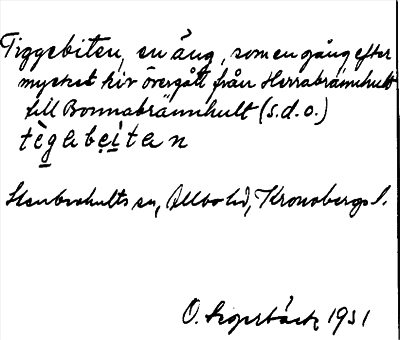 Tiggebiten, en äng, som en gång efter
mycket kiv övergått från Herrabrännhult
till Bonnabrännhult (s.d.o.)
tègabeìtan
Stenbrohults sn, Allbo hd, Kronobergs l.
O. 1931